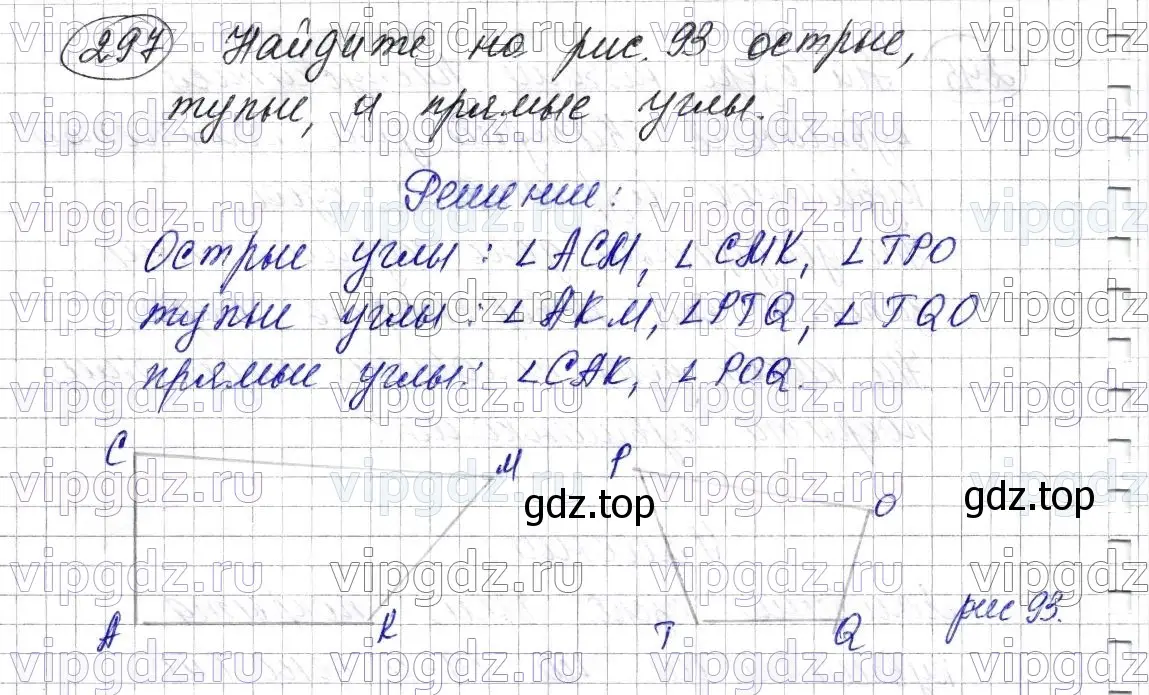 297 Найдите на рис. 93 острые,
тупые, и прямые углы.
Решение:
Острые углы: ∠ACM, ∠CMK, ∠TPO
тупые углы: ∠AKM, ∠PTQ, ∠TQO
прямые углы: ∠CAK, ∠POQ.
C
M
P
O
A
K
T
Q
рис 93.
gdz.top
gdz.top
vipgdz.ru